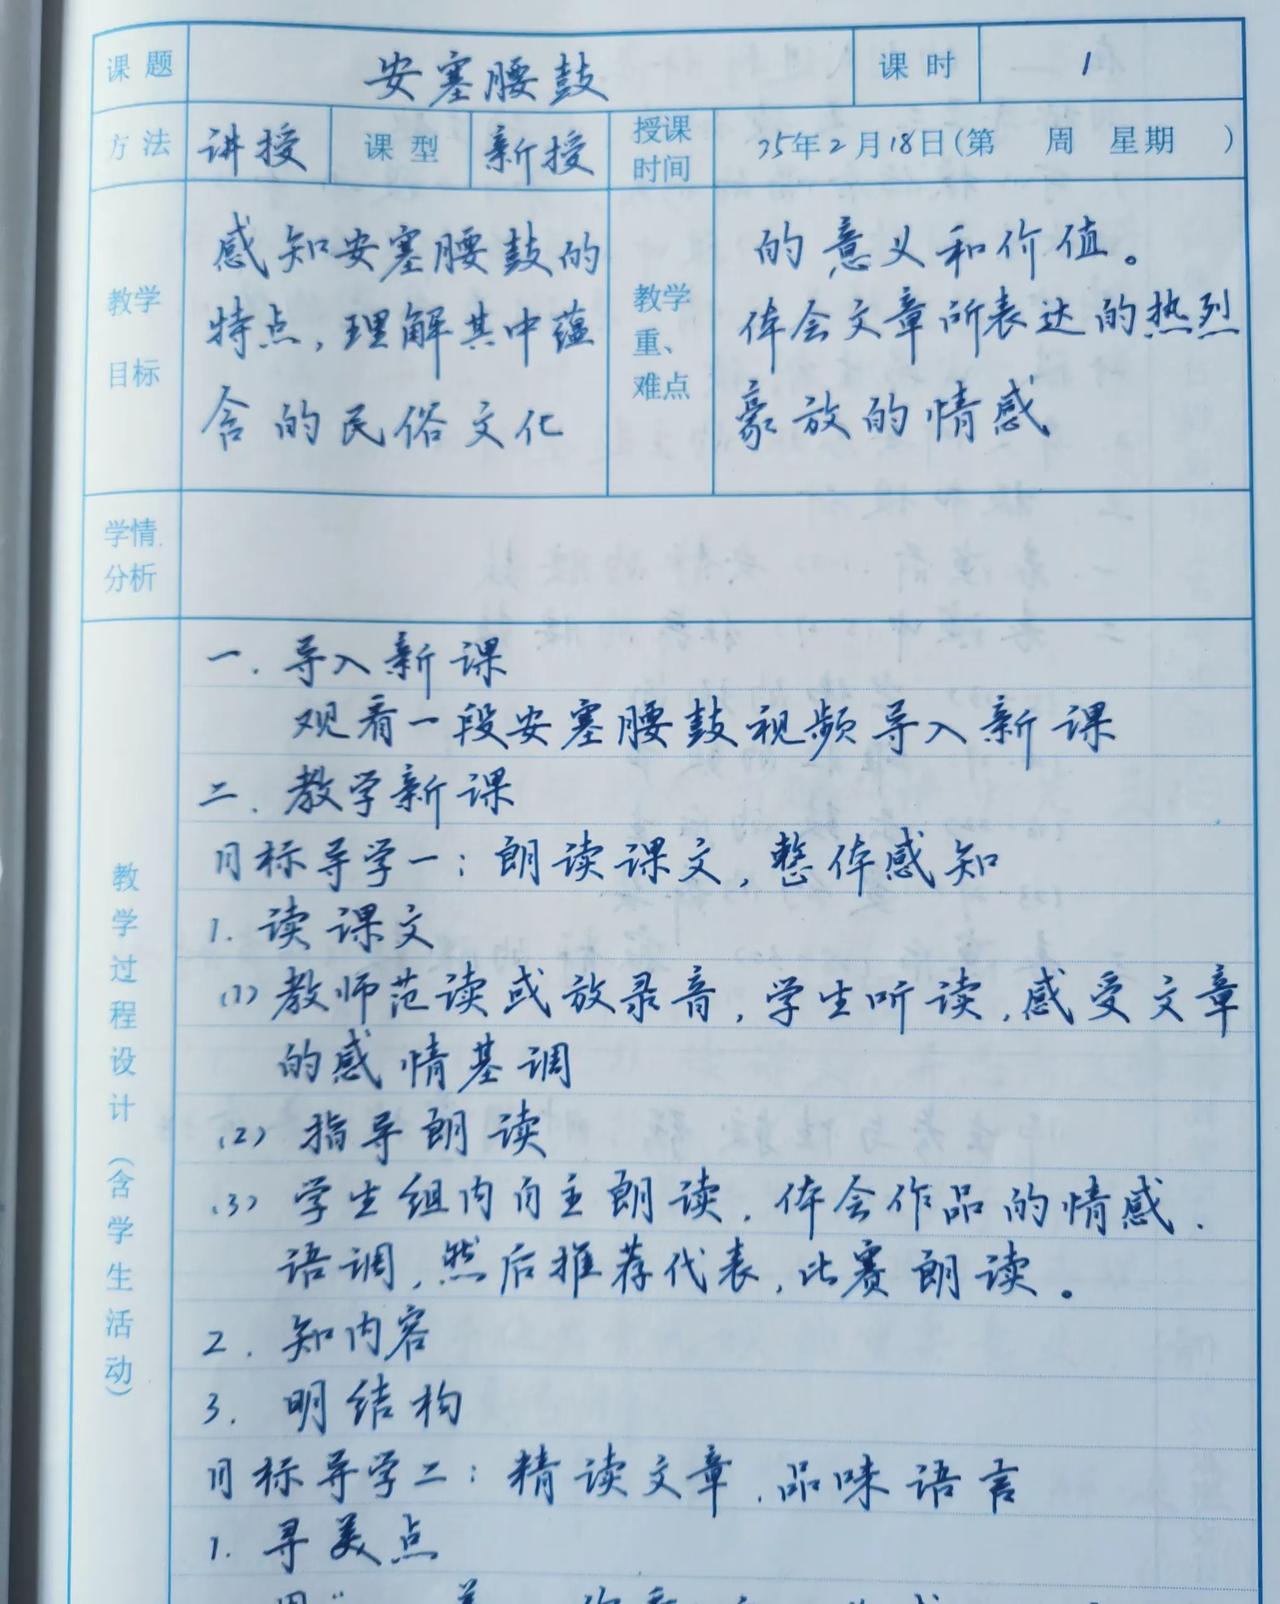 课题 安塞腰鼓 课时 1
方法 讲授 课型 新授 授课时间 25年2月18日(第 周 星期 )
教学目标
感知安塞腰鼓的
特点，理解其中蕴
含的民俗文化
教学重、难点
的意义和价值。
体会文章所表达的热烈
豪放的情感
学情分析
教学过程设计（含学生活动）
一．导入新课
观看一段安塞腰鼓视频导入新课
二．教学新课
目标导学一：朗读课文，整体感知
1. 读课文
(1) 教师范读或放录音，学生听读，感受文章
的感情基调
(2) 指导朗读
(3) 学生组内自主朗读，体会作品的情感、
语调，然后推荐代表，比赛朗读。
2. 知内容
3. 明结构
目标导学二：精读文章，品味语言
1. 寻美点